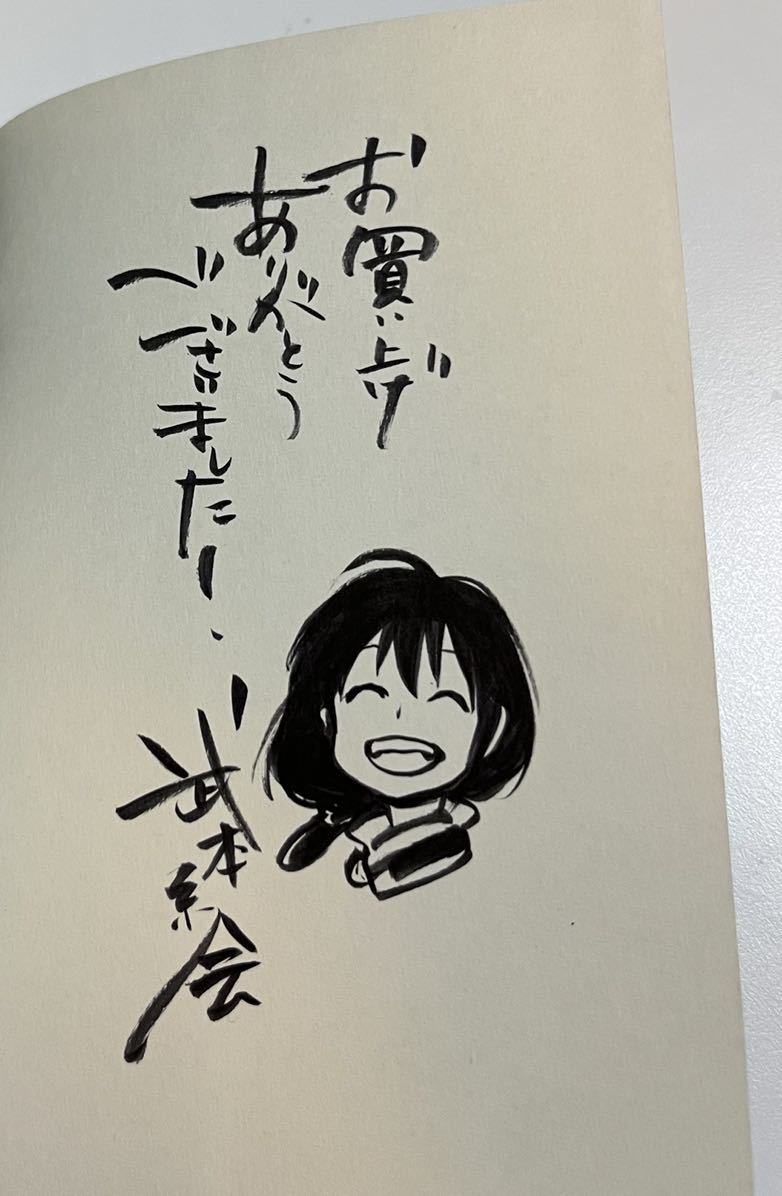 お買い上げ
ありがとう
ございました!
武本糸会